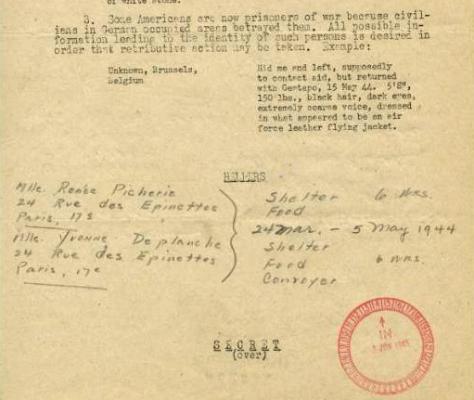 of white stone.
3. Some Americans are now prisoners of war because civil-
ians in German occupied areas betrayed them. All possible in-
formation leading to the identity of such persons is desired in
order that retributive action may be taken. Example:
Unknown, Brussels, Belgium
Hid me and left, supposedly
to contact aid, but returned
with Gestapo, 15 May 44. 5'8",
150 lbs., black hair, dark eyes,
extremely coarse voice, dressed
in what appeared to be an air
force leather flying jacket.
HELPERS
Mlle. Renée Picherie
24 Rue des Epinettes
Paris, 17e
Mlle. Yvonne Deplanche
24 Rue des Epinettes
Paris, 17e
Shelter 6 wks.
Food
24 Mar. - 5 May 1944
Shelter
Food 6 wks.
Convoyer
SECRET
(over)
IN
JUN